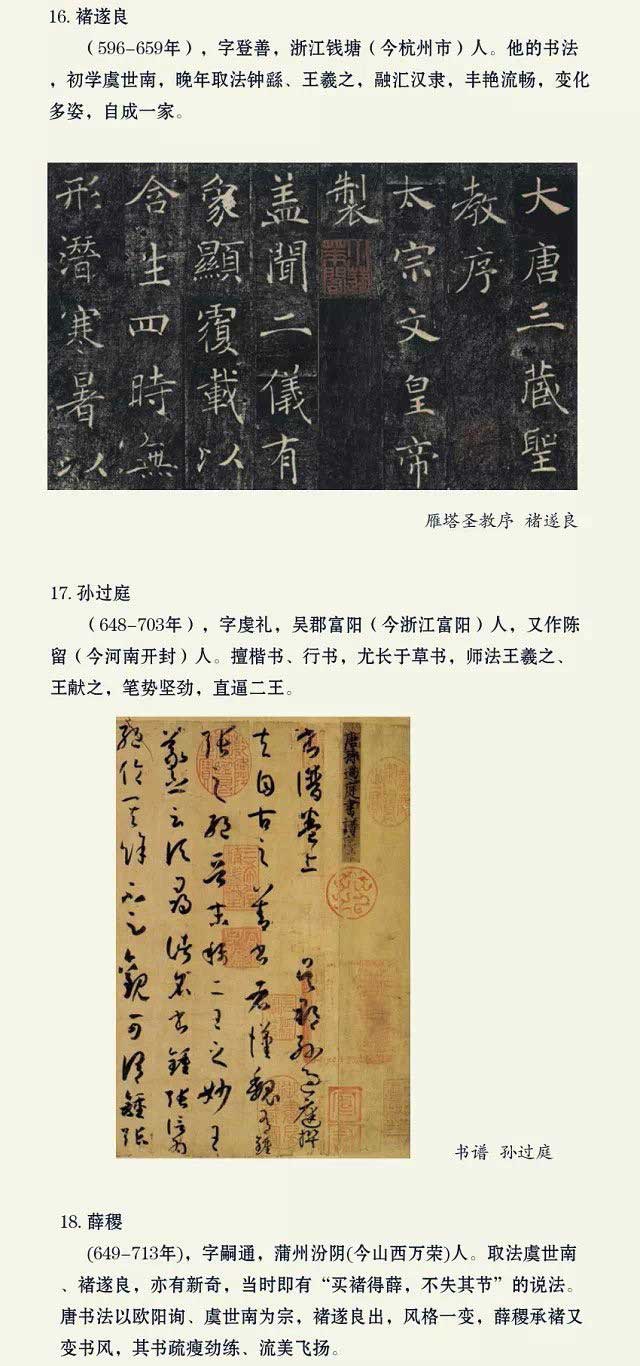 16. 褚遂良
（596-659年），字登善，浙江钱塘（今杭州市）人。他的书法
，初学虞世南，晚年取法钟繇、王羲之，融汇汉隶，丰艳流畅，变化
多姿，自成一家。
大唐三藏聖
教序
太宗文皇帝
製
盖聞二儀有
象顯覆載以
含生四時無
形潛寒暑以
雁塔圣教序 褚遂良
17. 孙过庭
（648-703年），字虔礼，吴郡富阳（今浙江富阳）人，又作陈
留（今河南开封）人。擅楷书、行书，尤长于草书，师法王羲之、
王献之，笔势坚劲，直逼二王。
唐孫過庭書譜
書譜卷上 吳郡孫過庭撰
夫自古之善書者漢魏有鍾
張之絕晉末稱二王之妙王
羲之云頃尋諸名書鍾張信為
絕倫其餘不足觀可謂鍾張
书谱 孙过庭
18. 薛稷
(649-713年)，字嗣通，蒲州汾阴(今山西万荣)人。取法虞世南
、褚遂良，亦有新奇，当时即有“买褚得薛，不失其节”的说法。
唐书法以欧阳询、虞世南为宗，褚遂良出，风格一变，薛稷承褚又
变书风，其书疏瘦劲练、流美飞扬。